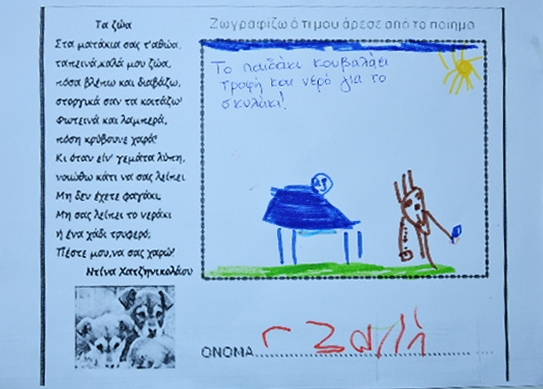 Τα ζώα
Στα ματάκια σας τ'αθώα,
ταπεινά,καλά μου ζώα,
πόσα βλέπω και διαβάζω,
στοργικά σαν τα κοιτάζω!
Φωτεινά και λαμπερά,
πόση κρύβουνε χαρά!
Κι όταν είν' γεμάτα λύπη,
νοιώθω κάτι να σας λείπει
Μη δεν έχετε φαγάκι;
Μη σας λείπει το νεράκι
ή ένα χάδι τρυφερό;
Πέστε μου,να σας χαρώ!
Ντίνα Χατζηνικολάου
Ζωγραφίζω ό,τι μου άρεσε από το ποίημα
Το παιδάκι κουβαλάει
τροφή και νερό για το
σκυλάκι!
ΟΝΟΜΑ